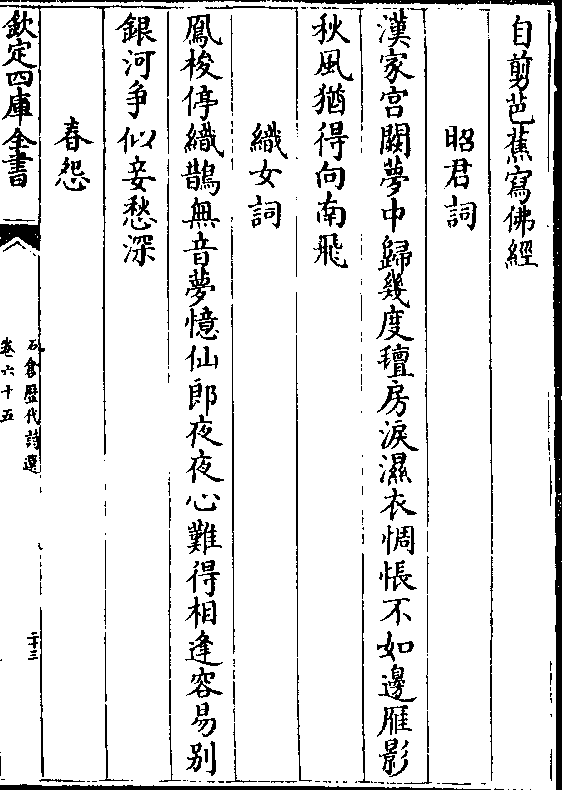 自剪芭蕉寫佛經
昭君詞
漢家宮闕夢中歸幾度氊房淚濕衣惆悵不如邊雁影
秋風猶得向南飛
織女詞
鳳梭停織鵲無音夢憶仙郎夜夜心難得相逢容易别
銀河争似妾愁深
春怨
欽定四庫全書
石倉歷代詩選
卷六十五
二十三